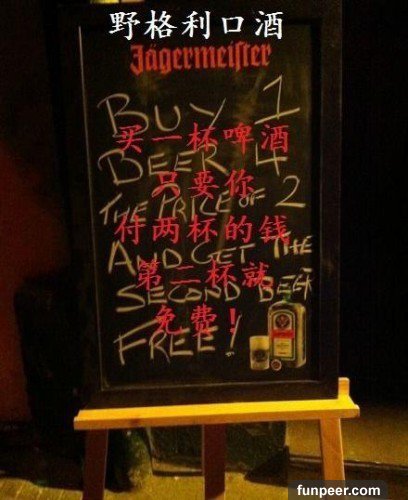 野格利口酒
Jägermeister
BUY 1
买一杯啤酒
BEER 4
只要你
THE PRICE OF 2
付两杯的钱
AND GET THE
第二杯就
SECOND BEER
免费！
FREE!
funpeer.com